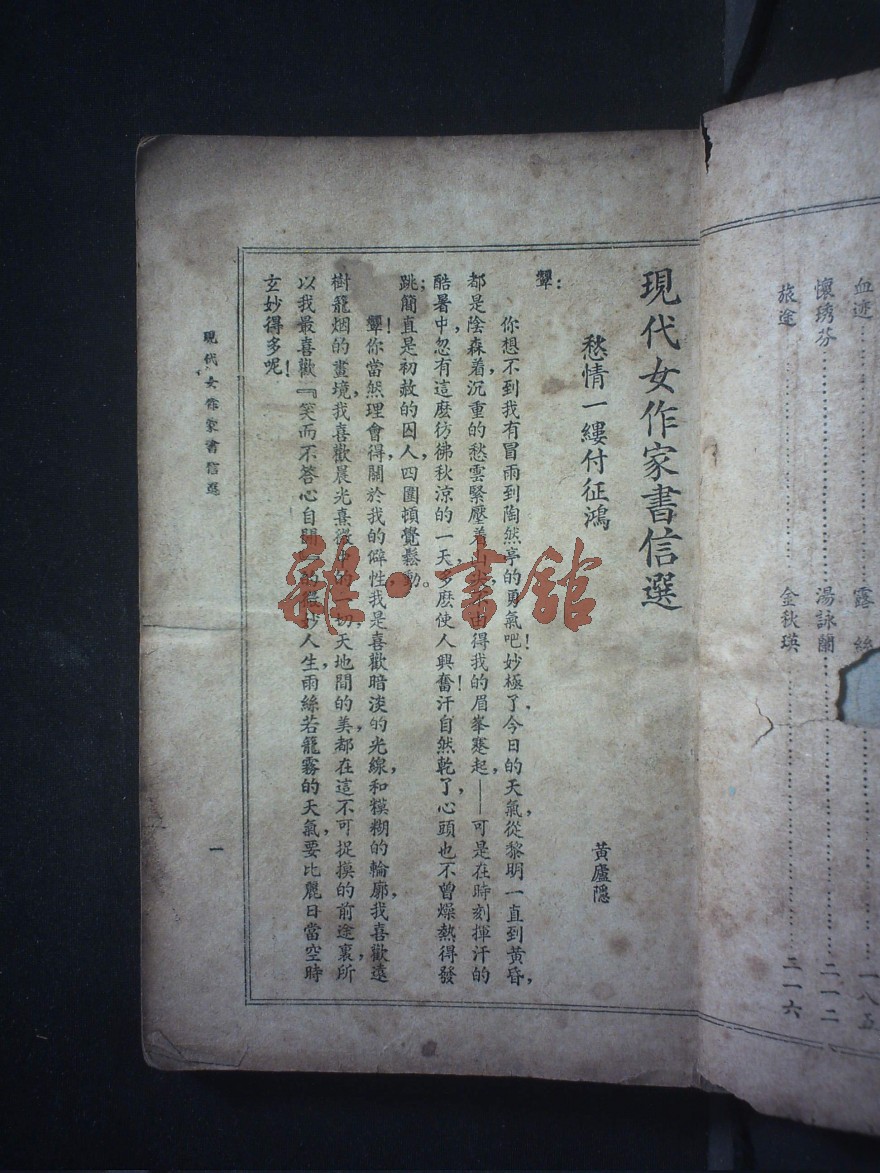 血迹……露絲……一八五
懷琇芬……湯詠蘭……二一二
旅途……金秋瑛……二一六
現代女作家書信選
愁情一縷付征鴻 黃廬隱
顰：
你想不到我有冒雨到陶然亭的勇氣吧！妙極了，今日的天氣，從黎明一直到黃昏，
都是陰森着，沉重的愁雲緊壓着山尖，不由得我的眉峯蹙起，——可是在時刻揮汗的
酷暑中，忽有這麽彷彿秋涼的一天，多麽使人興奮！汗自然乾了，心頭也不曾燥熱得發
跳；簡直是初赦的囚人，四圍頓覺鬆動。
顰！你當然理會得，關於我的僻性，我是喜歡暗淡的光線，和糢糊的輪廓，我喜歡遠
樹籠烟的畫境，我喜歡晨光熹微中的一切，天地間的美，都在這不可捉摸的前途裏，所
以我最喜歡『笑而不答心自閑』的微妙人生，雨絲若籠霧的天氣，要比麗日當空時
玄妙得多呢！
現代女作家書信選
一
雜·書館